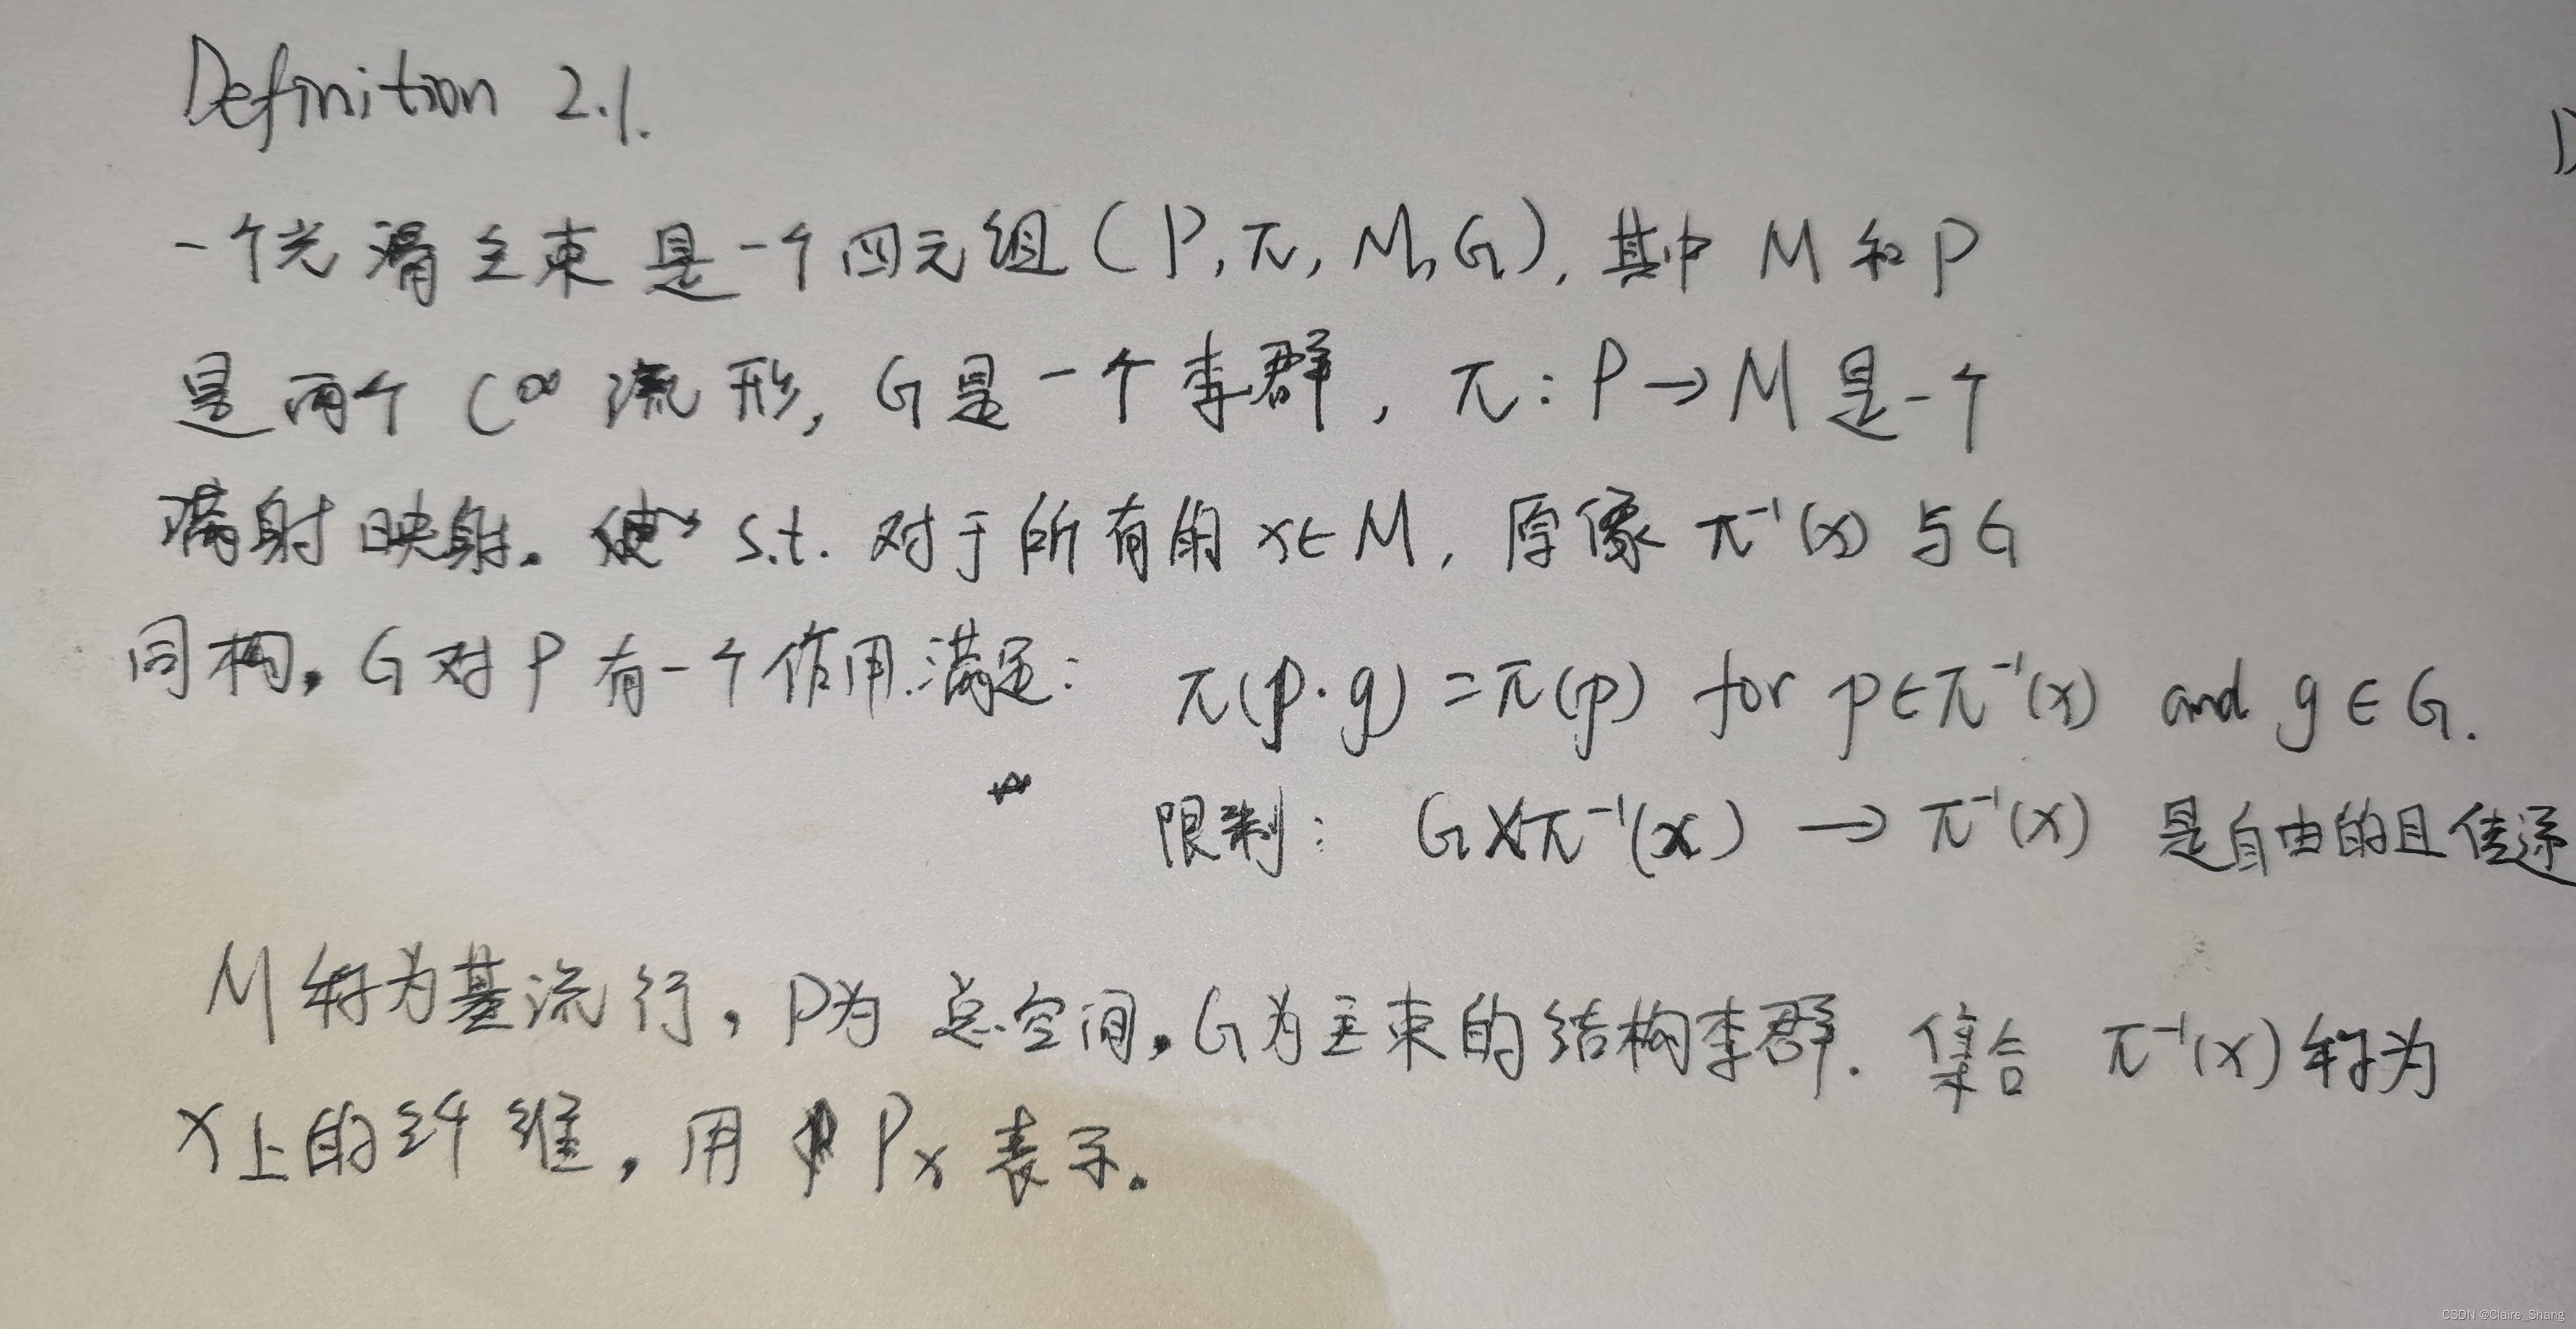 Definition 2.1.
一个光滑主束是一个四元组(P,π,M,G),其中 M和P
是两个 C^∞ 流形, G是一个李群, π:P→M是一个
满射映射。使 s.t. 对于所有的 x∈M, 原像 π⁻¹(x) 与G
同构。G对P有一个作用.满足: π(p·g)=π(p) for p∈π⁻¹(x) and g∈G.
限制: G×π⁻¹(x)→π⁻¹(x) 是自由的且传递
M称为基流行, P为 总空间。G为主束的结构李群. 集合 π⁻¹(x)称为
x上的纤维, 用 Pₓ表示。
CSDN @Claire_Shang